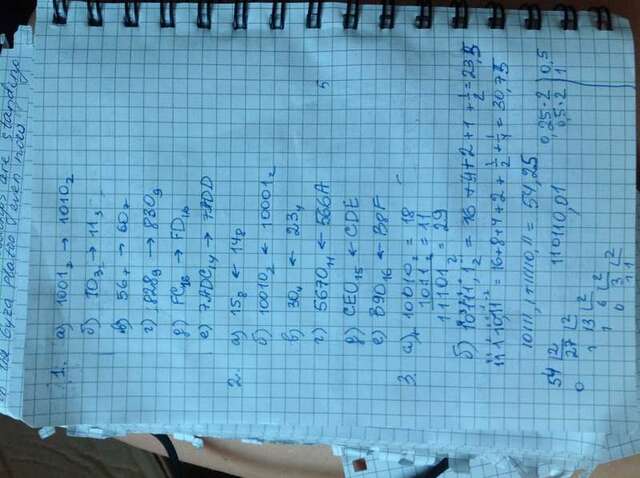 1. а) 1001₂ → 1010₂
б) 10₃ → 11₃
в) 56₇ → 60₇
г) 828₉ → 830₉
д) FC₁₆ → FD₁₆
е) 7ADC₁₄ → 7ADD
2. а) 15₈ ← 14₈
б) 10010₂ ← 10001₂
в) 30₄ ← 23₄
г) 5670₁₁ ← 566A
д) CE0₁₅ ← CDE
е) B90₁₆ ← B8F
3. а) 10010₂ = 18
1011₂ = 11
11101₂ = 29
б) 10111,1₂ = 16+4+2+1+½ = 23,5
11110,11 = 16+8+4+2+½+¼ = 30,75
10111,1+11110,11 = 54,25
110110,01
54 |2
0 27 |2
1 13 |2
1 6 |2
0 3 |2
1 1
0,25·2 | 0,5
0,5·2 | 1
5